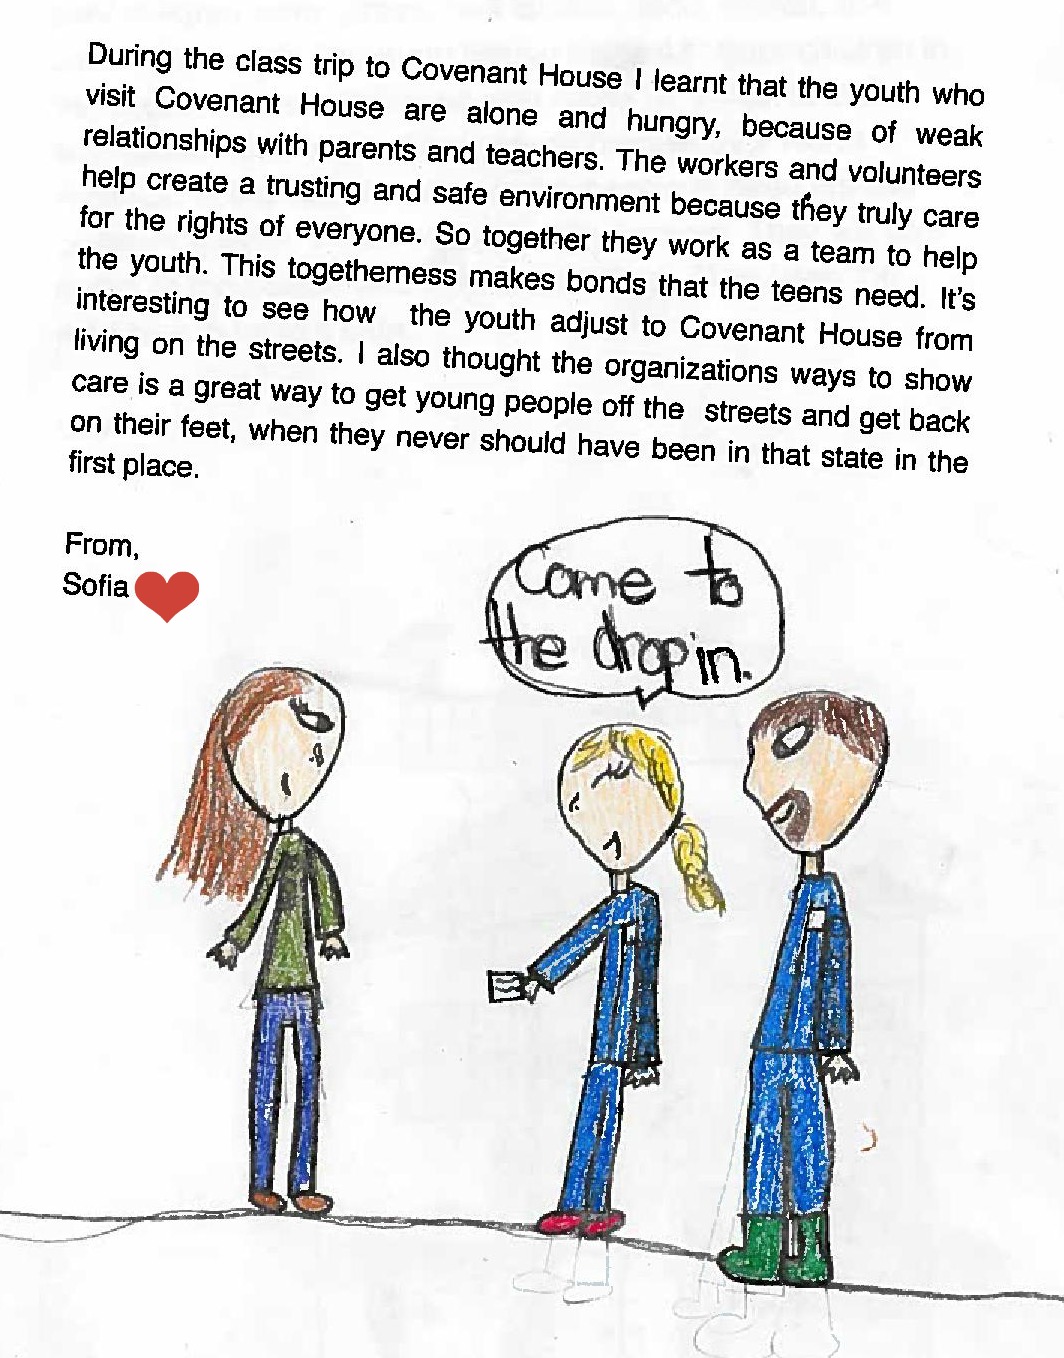 During the class trip to Covenant House I learnt that the youth who
visit Covenant House are alone and hungry, because of weak
relationships with parents and teachers. The workers and volunteers
help create a trusting and safe environment because they truly care
for the rights of everyone. So together they work as a team to help
the youth. This togetherness makes bonds that the teens need. It's
interesting to see how the youth adjust to Covenant House from
living on the streets. I also thought the organizations ways to show
care is a great way to get young people off the streets and get back
on their feet, when they never should have been in that state in the
first place.
From,
Sofia
Come to
the drop in.